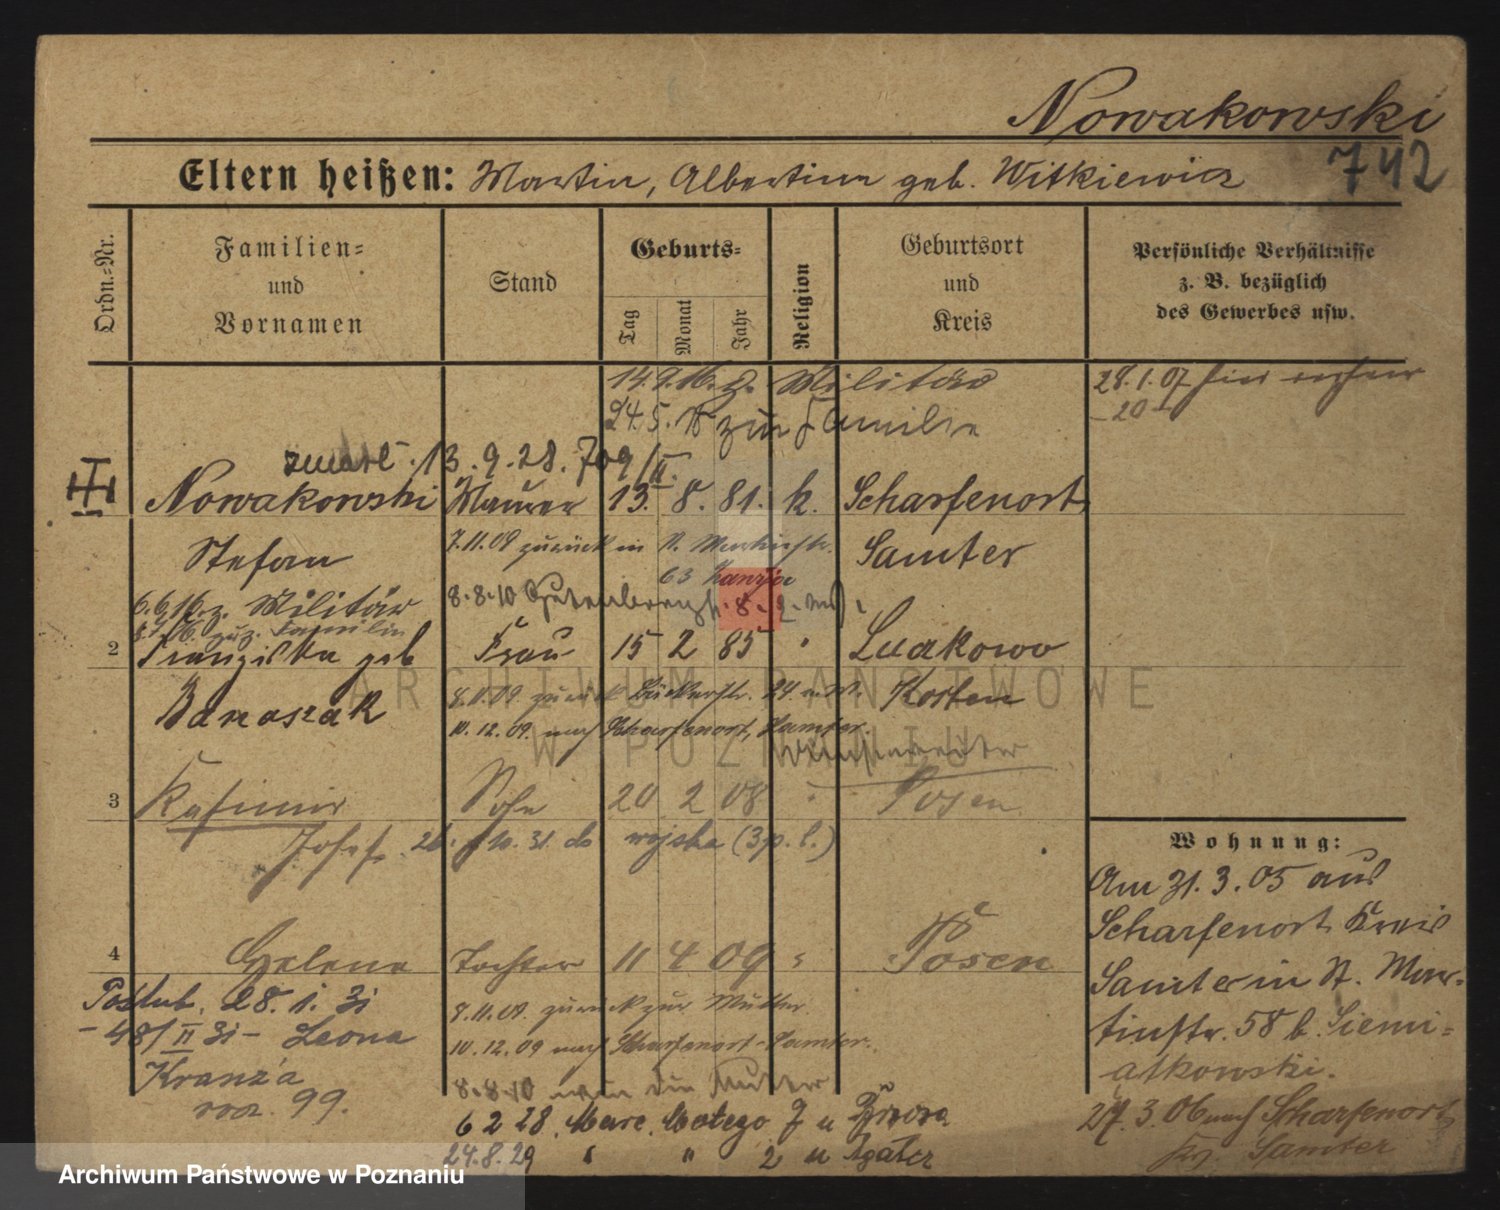 Nowakowski
742
Eltern heißen: Martin, Albertine geb. Witkiewicz
Ordn.-Nr.
Familien- und Vornamen
Stand
Geburts-
Tag
Monat
Jahr
Religion
Geburtsort und Kreis
Persönliche Verhältnisse
z. B. bezüglich
des Gewerbes usw.
14.9.16 z. Militär
24.5. zur Familie
28.1.07 hier
-20-
zmarł 13.9.28. 709/II.
Nowakowski Maurer 13. 8. 81. k. Scharfenort
Stefan
7.11.09 zurück in St. Martinstr.
Samter
63
6.6.16 z. Militär
8.8.10 Gutenbergstr. 8
zur Familie
2 Franziska geb Frau 15 2 85 " Luakowo
Banaszak
8.11.09 zurück Bäckerstr. 24
Kosten
10.12.09. nach Scharfenort, Samter.
3 Kasimir Sohn 20 2 08 " Posen
Josef. 26. 31 do wojska (3 p. l.)
Wohnung:
Am 31.3.05 aus
Scharfenort Kreis
Samter in St. Mar-
tinstr. 58 b. Siemi-
atkowski.
27.3.06 nach Scharfenort
Samter
4 Helene Tochter 11 4 09 " Posen
8.11.09. zurück zur Mutter.
10.12.09 nach Scharfenort-Samter.
8.8.10 Mutter
Poślub. 28. 1. 31
-48/II 31- Leona
Kranza
99.
6 2 28. Marc. Motego 7 u
24.8.29 " " 2 u
ARCHIWUM PAŃSTWOWE
W POZNANIU
Archiwum Państwowe w Poznaniu